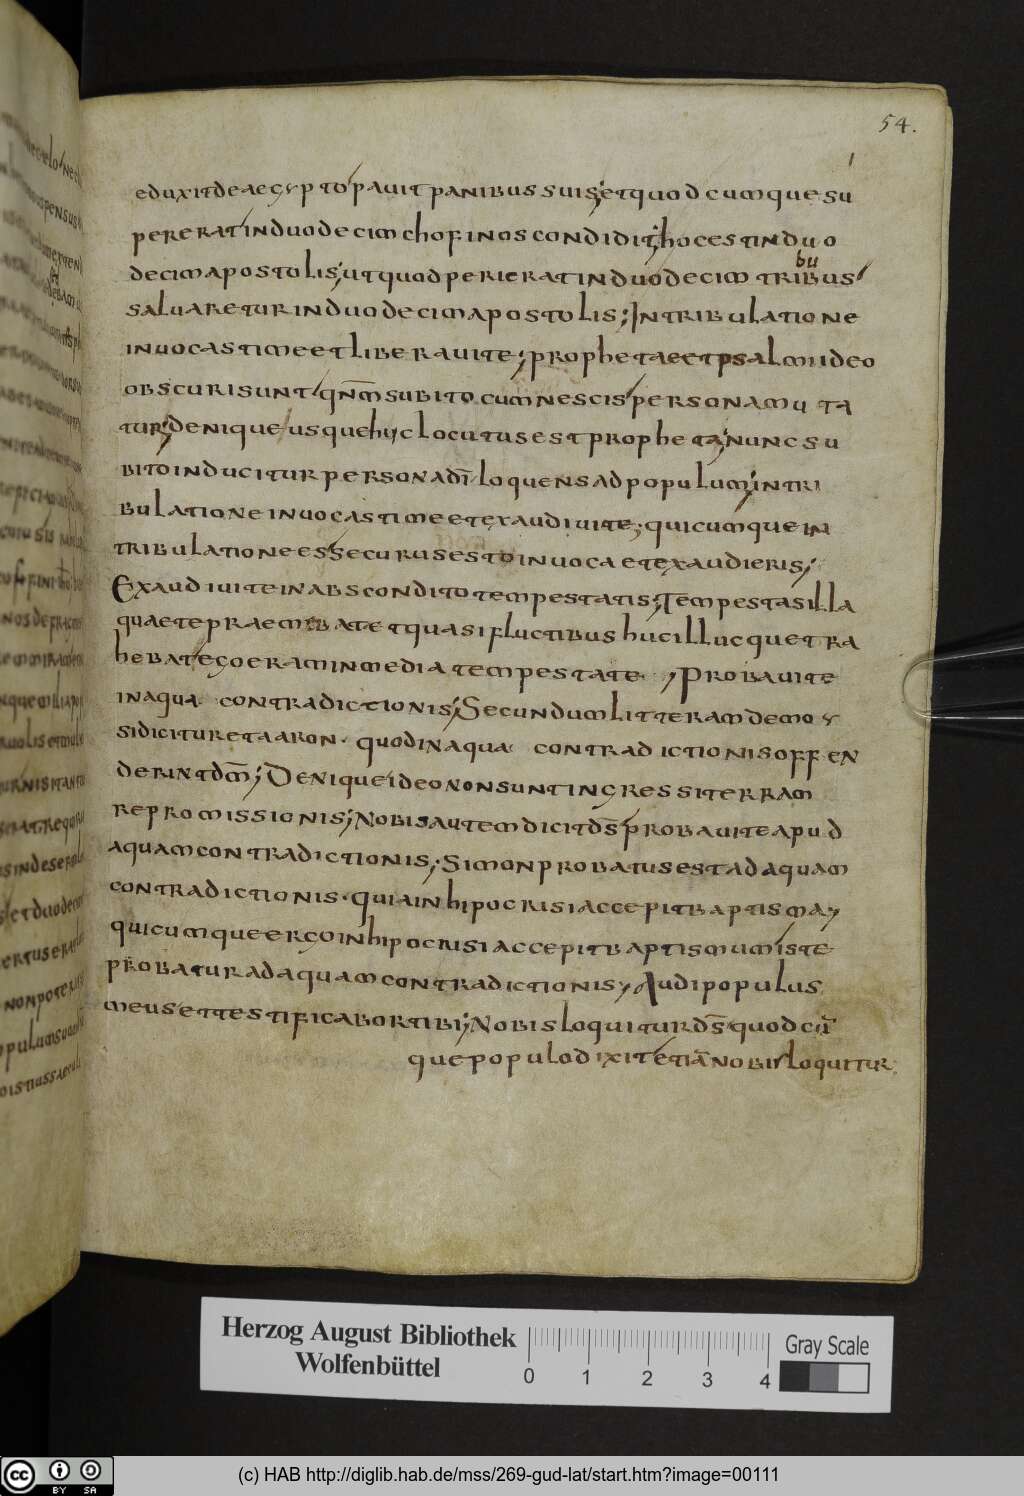 54.
eduxit de aegypto pauit panibus suis; et quodcumque su
pererat in duodecim chofinos condidit; hoc est in duo
decim apostolis; ut quod perierat in duodecim tribus
bu
saluaretur in duodecim apostolis; In tribulatione
inuocasti me et liberaui te; prophetae et psalmi ideo
obscuri sunt qnm subito cum nescis persona muta
tur; denique usque huc locutus est propheta; nunc su
bito inducitur persona di loquens ad populum; in tri
bulatione inuocasti me et exaudiui te; quicumque in
tribulatione es securus esto inuoca et exaudieris;
Exaudiui te in abscondito tempestatis; Tempestas illa
quae te praemebat et quasi fluctibus huc illucque tra
hebat ego eram in media tempestate; Probaui te
in aqua contradictionis; Secundum litteram demoy
si dicitur et aaron. quod in aqua contradictionis offen
derint dm; Denique ideo non sunt ingressi terram
repromissionis; Nobis autem dicit ds probaui te apud
aquam contradictionis; Simon probatus est ad aquam
contradictionis. quia in hipocrisi accepit baptisma;
quicumque ergo in hipocrisi accepit baptismum iste
probatur ad aquam contradictionis; Audi populus
meus et testificabor tibi; Nobis loquitur ds quod cu
que populo dixit etia nobis loquitur
Herzog August Bibliothek
Wolfenbüttel
0 1 2 3 4
Gray Scale
cc BY SA
(c) HAB http://diglib.hab.de/mss/269-gud-lat/start.htm?image=00111